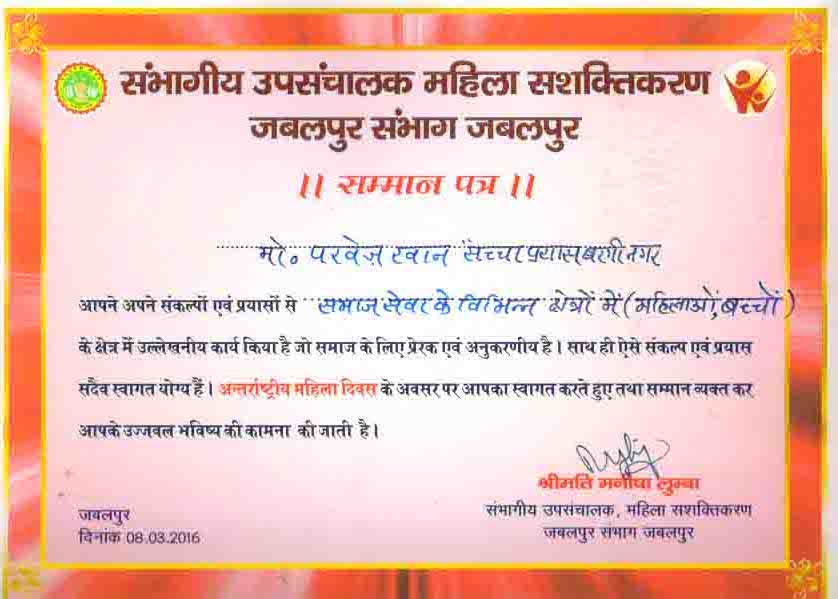 संभागीय उपसंचालक महिला सशक्तिकरण
जबलपुर संभाग जबलपुर
।। सम्मान पत्र ।।
मो. परवेज़ खान सच्चा प्रयास बरगी नगर
आपने अपने संकल्पों एवं प्रयासों से समाज सेवा के विभिन्न क्षेत्रों में (महिलाओं, बच्चों)
के क्षेत्र में उल्लेखनीय कार्य किया है जो समाज के लिए प्रेरक एवं अनुकरणीय है। साथ ही ऐसे संकल्प एवं प्रयास
सदैव स्वागत योग्य हैं। अन्तर्राष्ट्रीय महिला दिवस के अवसर पर आपका स्वागत करते हुए तथा सम्मान व्यक्त कर
आपके उज्जवल भविष्य की कामना की जाती है।
श्रीमति मनीषा लुम्बा
संभागीय उपसंचालक, महिला सशक्तिकरण
जबलपुर संभाग जबलपुर
जबलपुर
दिनांक 08.03.2016